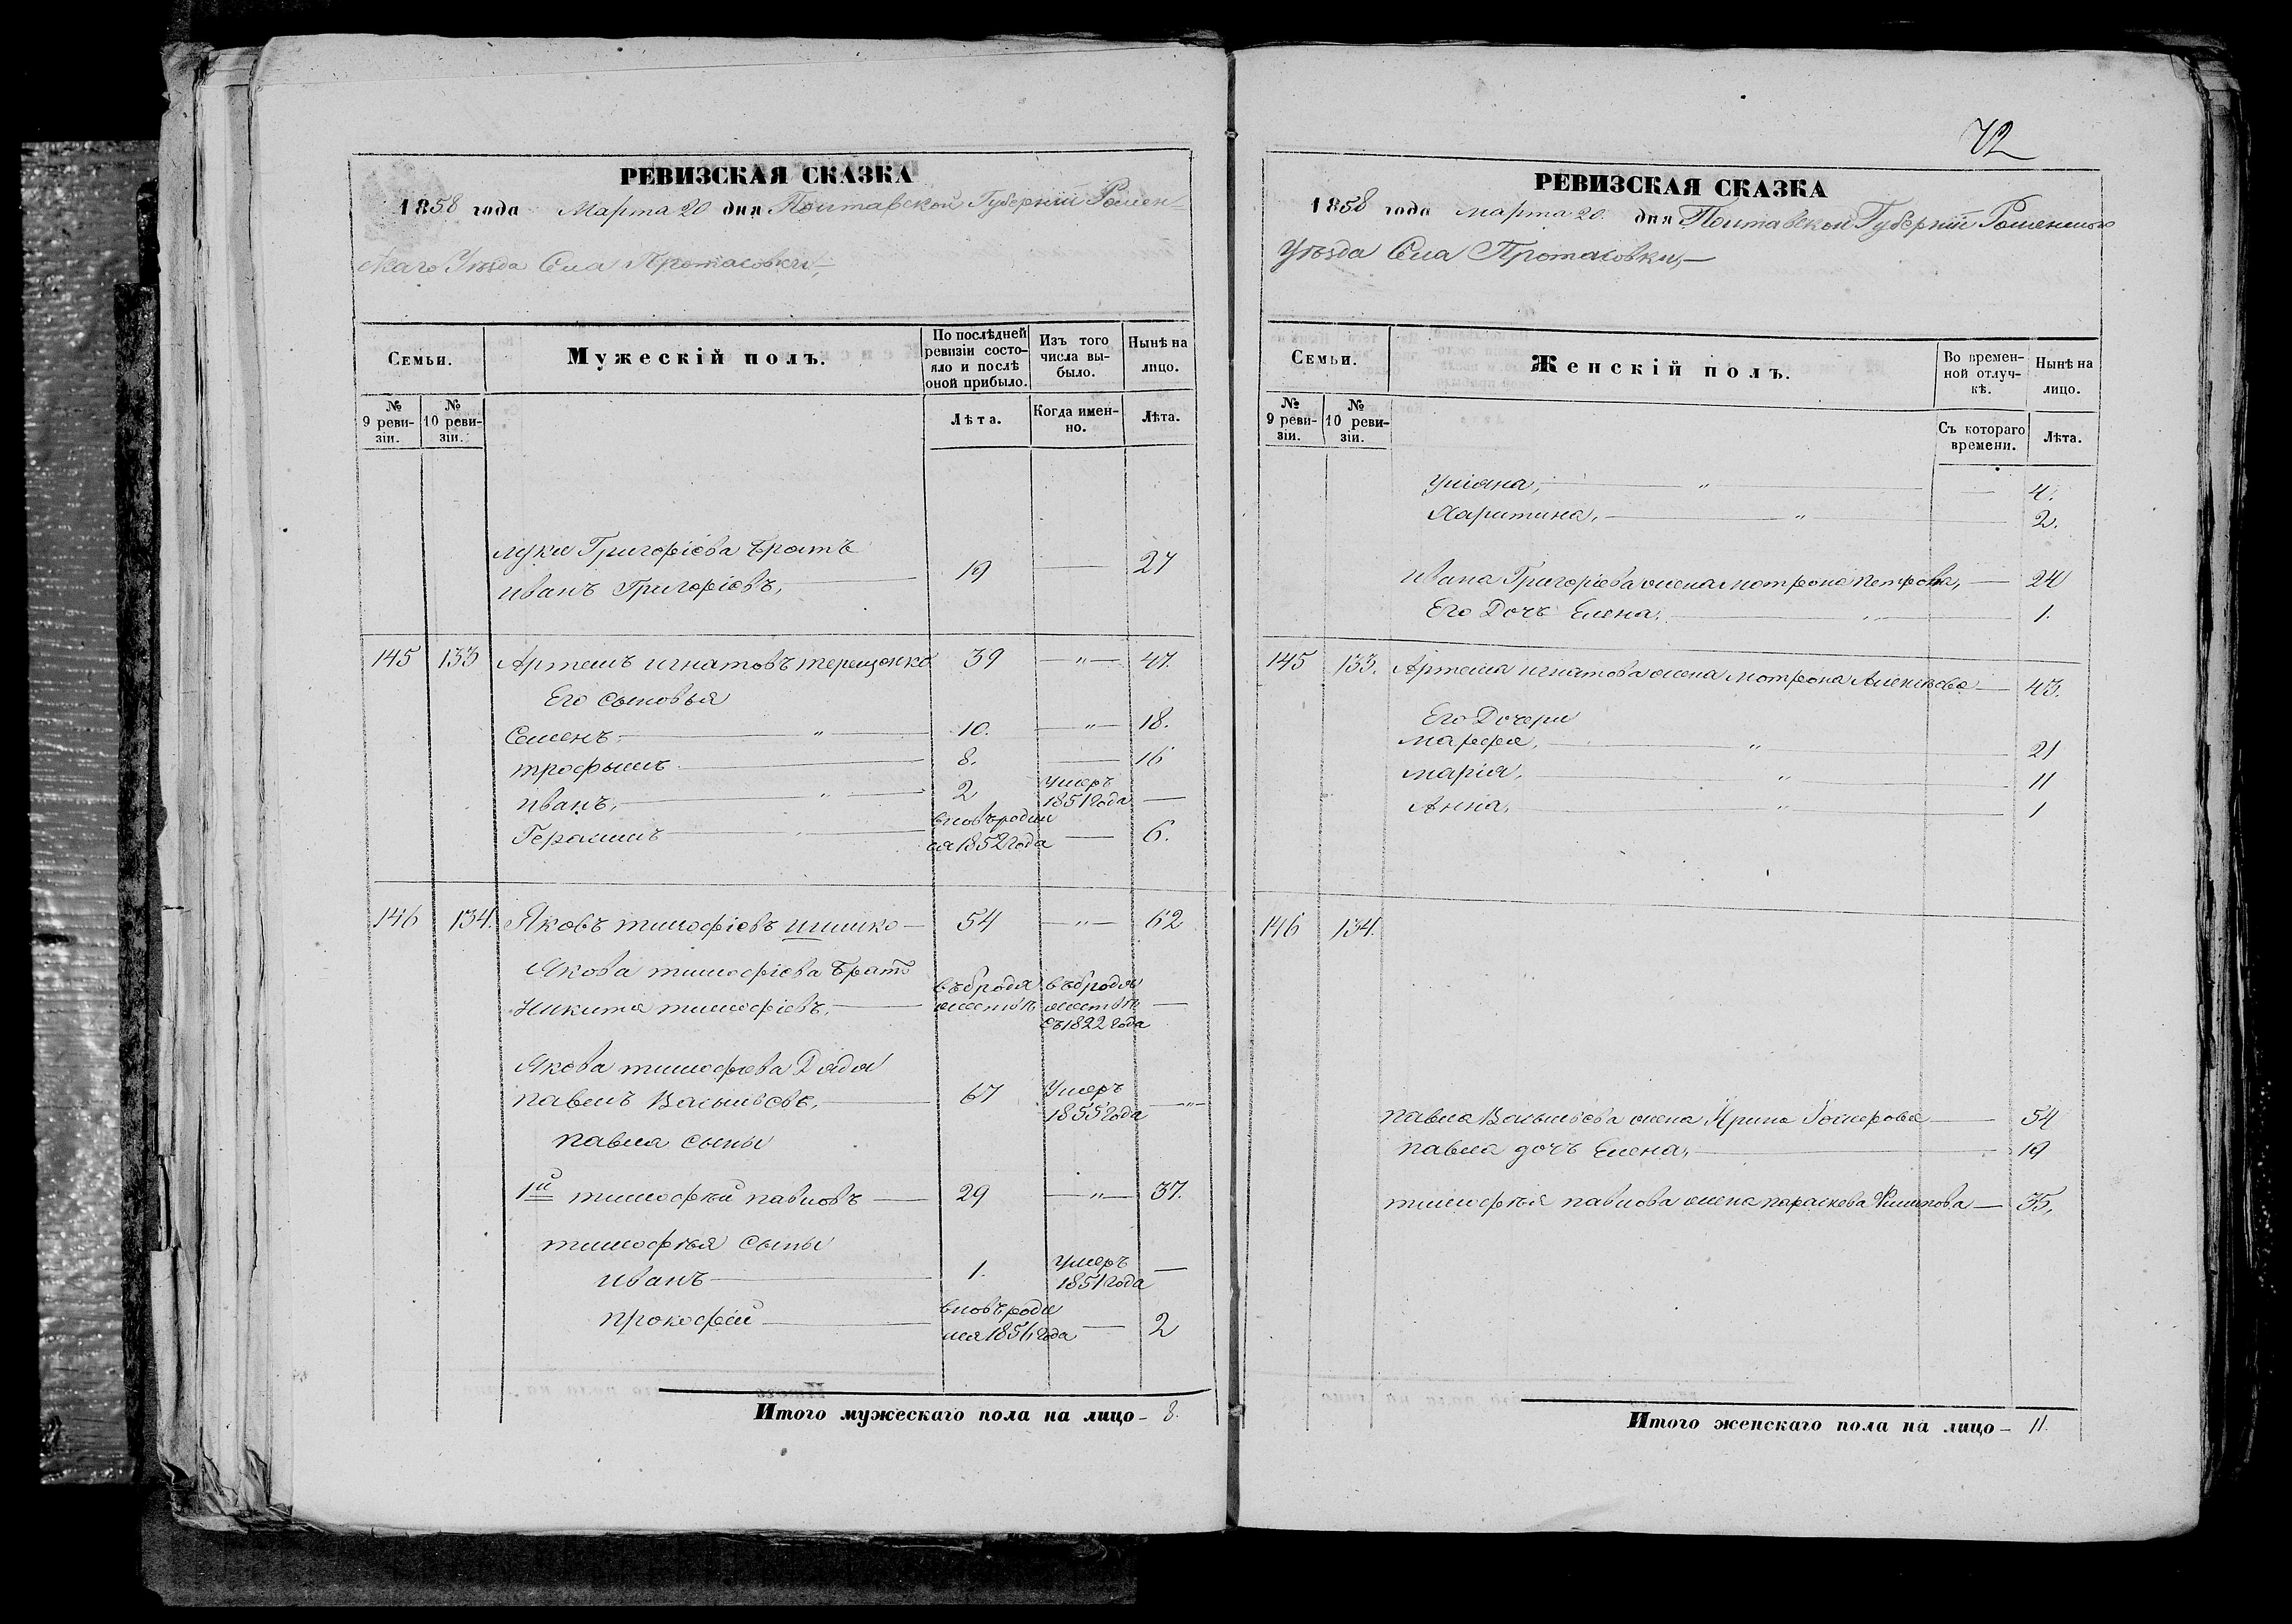 РЕВИЗСКАЯ СКАЗКА
1858 года Марта 20 дня Полтавской Губерніи Ромен-
скаго Уѣзда Села Протасовки,
Семьи.
Мужескій полъ.
По послѣдней ревизіи состо-яло и послѣ оной прибыло.
Изъ того числа вы-было.
Нынѣ на лицо.
№ 9 реви-зіи.
№ 10 реви-зіи.
Лѣта.
Когда имен-но.
Лѣта.
Луки Григоріева Братъ
Иванъ Григоріевъ, 19 — 27
145 133 Артемъ Игнатовъ Терещенко 39 —"— 47.
Его сыновья
Семенъ " 10. —"— 18.
Трофымъ 8. — 16
Иванъ, " 2 умеръ 1851 года —
Герасимъ вновь родил ся 1852 года — 6.
146 134. Яковъ Тимофіевъ Шишко — 54 —"— 62
Якова Тимофіева Братъ
Никита Тимофіевъ, въ бродяжествѣ въ бродяжествѣ съ 1822 года —
Якова Тимофіева Дядя
Павелъ Васильевъ, 67 Умеръ 1855 года —"—
Павла сыны
1й Тимофѣй Павловъ 29 —"— 37.
Тимофѣя Сыны
Иванъ 1. умеръ 1851 года —
Прокофій вновь роди лся 1856 года — 2
Итого мужескаго пола на лицо – 8.
72
РЕВИЗСКАЯ СКАЗКА
1858 года марта 20. дня Полтавской Губерніи Роменского
Уѣзда Села Протасовки,—
Семьи.
Женскій полъ.
Во времен-ной отлуч-кѣ.
Нынѣ на лицо.
№ 9 реви-зіи.
№ 10 реви-зіи.
Съ котораго времени.
Лѣта.
Уліяна, " — 4.
Харитина, " 2.
Ивана Григоріева жена Мотрона Петрова, — 24
Его Дочь Елена, " 1.
145 133. Артема Игнатова жена Мотрона Алексѣева — 43.
Его Дочери
Марфа, " 21
Марія, " 11
Анна, " 1
146 134.
Павла Васильева жена Ирина 54
Павла дочь Елена, 19
Тимофѣя Павлова жена Параскева Филипова — 35,
Итого женскаго пола на лицо – 11.